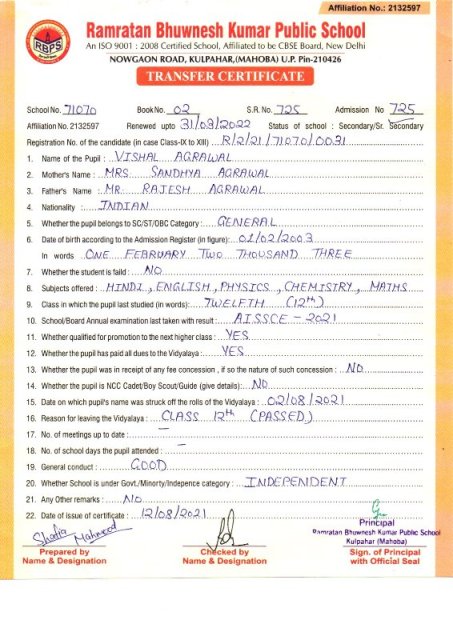 Affiliation No.: 2132597
RBPS
Ramratan Bhuwnesh Kumar Public School
An ISO 9001 : 2008 Certified School, Affiliated to be CBSE Board, New Delhi
NOWGAON ROAD, KULPAHAR,(MAHOBA) U.P. Pin-210426
TRANSFER CERTIFICATE
School No. 71070 Book No. 02 S.R. No. 725 Admission No 725
Affiliation No. 2132597 Renewed upto 31/03/2022 Status of school : Secondary/Sr. Secondary
Registration No. of the candidate (in case Class-IX to XIII) R/2/21/71070/0031
1. Name of the Pupil : VISHAL AGRAWAL
2. Mother's Name : MRS SANDHYA AGRAWAL
3. Father's Name : MR. RAJESH AGRAWAL
4. Nationality : INDIAN
5. Whether the pupil belongs to SC/ST/OBC Category : GENERAL
6. Date of birth according to the Admission Register (in figure): 01/02/2003
In words ONE FEBRUARY TWO THOUSAND THREE
7. Whether the student is faild : NO
8. Subjects offered : HINDI, ENGLISH, PHYSICS, CHEMISTRY, MATHS
9. Class in which the pupil last studied (in words): TWELFTH (12th)
10. School/Board Annual examination last taken with result : AISSCE - 2021
11. Whether qualified for promotion to the next higher class : YES
12. Whether the pupil has paid all dues to the Vidyalaya : YES
13. Whether the pupil was in receipt of any fee concession , if so the nature of such concession : NO
14. Whether the pupil is NCC Cadet/Boy Scout/Guide (give details): NO
15. Date on which pupil's name was struck off the rolls of the Vidyalaya : 02/08/2021
16. Reason for leaving the Vidyalaya : CLASS 12th (PASSED)
17. No. of meetings up to date : —
18. No. of school days the pupil attended : —
19. General conduct : GOOD
20. Whether School is under Govt./Minorty/Indepence category : INDEPENDENT
21. Any Other remarks : NO
22. Date of issue of certificate : 12/08/2021
Principal
Ramratan Bhuwnesh Kumar Public School
Kulpahar (Mahoba)
Prepared by Checked by Sign. of Principal
Name & Designation Name & Designation with Official Seal